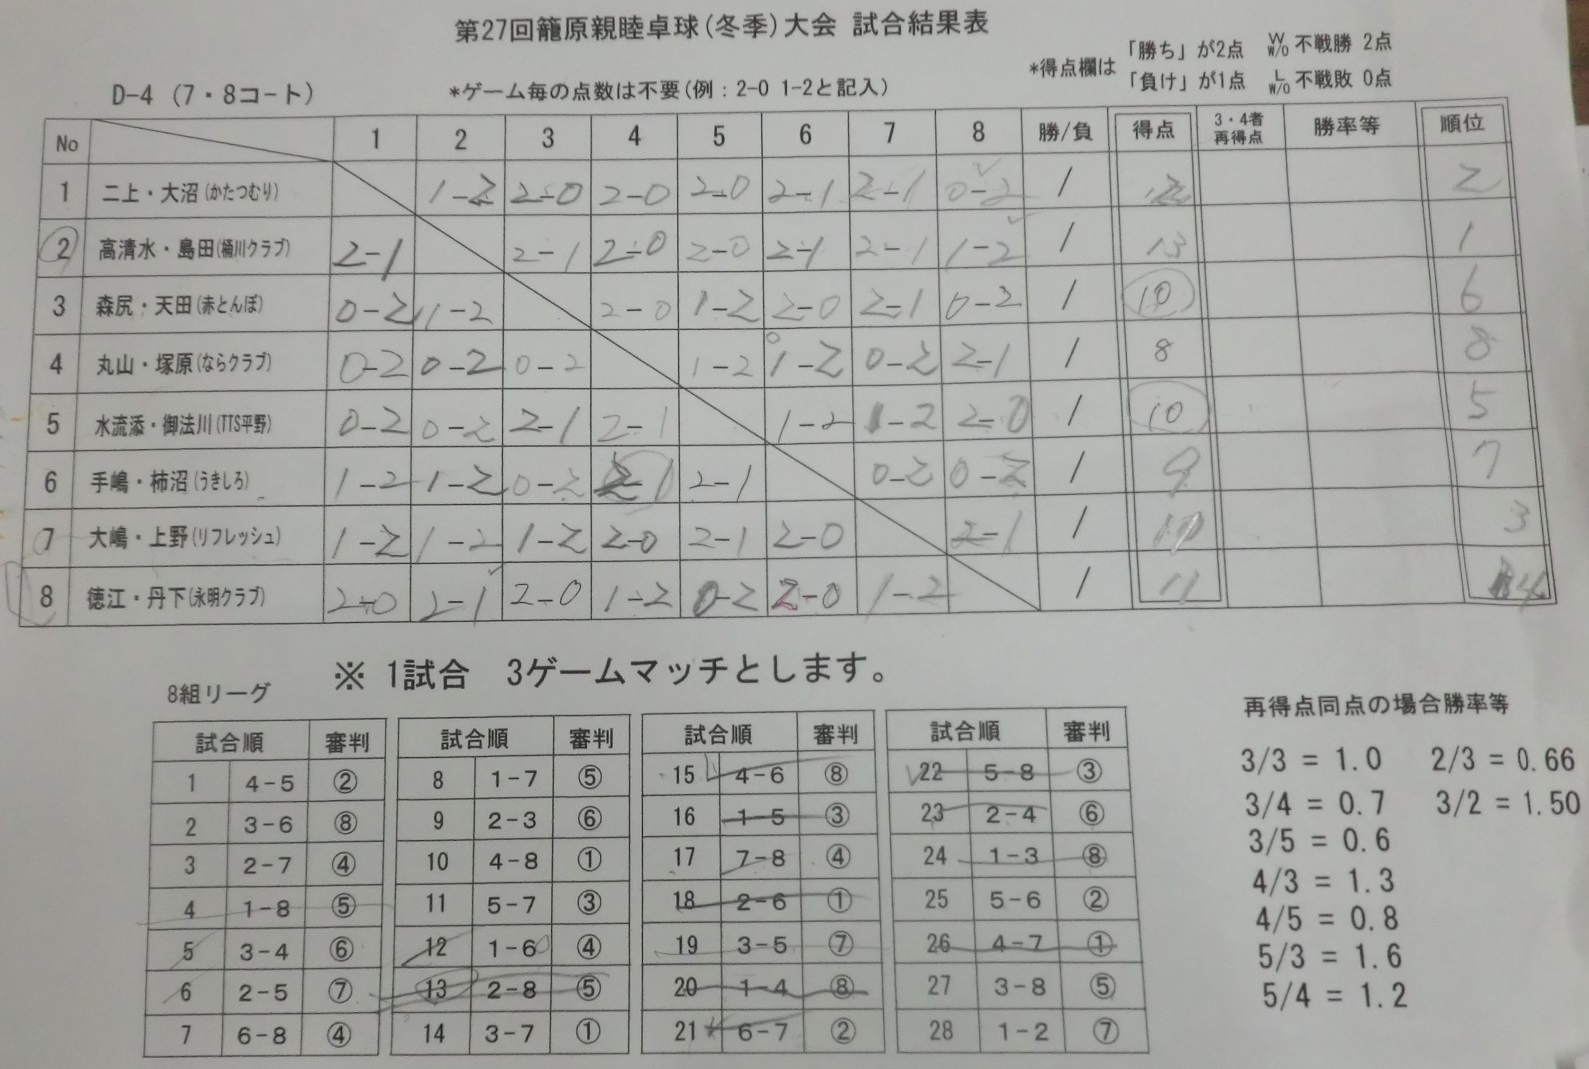 第27回籠原親睦卓球(冬季)大会 試合結果表
D-4 (7・8コート)
*ゲーム毎の点数は不要(例：2-0 1-2と記入)
*得点欄は 「勝ち」が2点 W W/O 不戦勝 2点
「負け」が1点 L W/O 不戦敗 0点
No 1 2 3 4 5 6 7 8 勝/負 得点 3・4者再得点 勝率等 順位
1 二上・大沼(かたつむり) 1-2 2-0 2-0 2-0 2-1 2-1 0-2 / 2
2 高清水・島田(桶川クラブ) 2-1 2-1 2-0 2-0 2-1 2-1 1-2 / 13 1
3 森尻・天田(赤とんぼ) 0-2 1-2 2-0 1-2 2-0 2-1 0-2 / 10 6
4 丸山・塚原(ならクラブ) 0-2 0-2 0-2 1-2 1-2 0-2 2-1 / 8 8
5 水流添・御法川(TTS平野) 0-2 0-2 2-1 2-1 1-2 1-2 2-0 / 10 5
6 手嶋・柿沼(うきしろ) 1-2 1-2 0-2 2-1 2-1 0-2 0-2 / 9 7
7 大嶋・上野(リフレッシュ) 1-2 1-2 1-2 2-0 2-1 2-0 2-1 / 3
8 徳江・丹下(永明クラブ) 2-0 2-1 2-0 1-2 0-2 2-0 1-2 / 11 4
※ 1試合 3ゲームマッチとします。
8組リーグ
試合順 審判
1 4-5 ②
2 3-6 ⑧
3 2-7 ④
4 1-8 ⑤
5 3-4 ⑥
6 2-5 ⑦
7 6-8 ④
試合順 審判
8 1-7 ⑤
9 2-3 ⑥
10 4-8 ①
11 5-7 ③
12 1-6 ④
13 2-8 ⑤
14 3-7 ①
試合順 審判
15 4-6 ⑧
16 1-5 ③
17 7-8 ④
18 2-6 ①
19 3-5 ⑦
20 1-4 ⑧
21 6-7 ②
試合順 審判
22 5-8 ③
23 2-4 ⑥
24 1-3 ⑧
25 5-6 ②
26 4-7 ①
27 3-8 ⑤
28 1-2 ⑦
再得点同点の場合勝率等
3/3 = 1.0 2/3 = 0.66
3/4 = 0.7 3/2 = 1.50
3/5 = 0.6
4/3 = 1.3
4/5 = 0.8
5/3 = 1.6
5/4 = 1.2